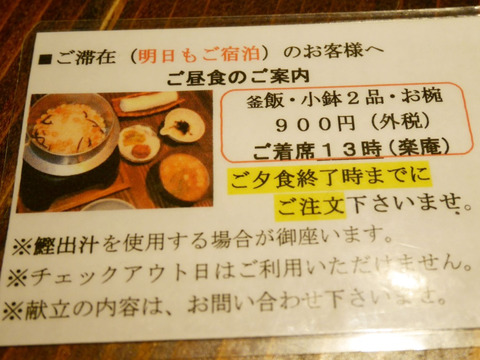 ■ご滞在（明日もご宿泊）のお客様へ
ご昼食のご案内
釜飯・小鉢２品・お椀
９００円（外税）
ご着席１３時（楽庵）
ご夕食終了時までに
ご注文下さいませ。
※鰹出汁を使用する場合が御座います。
※チェックアウト日はご利用いただけません。
※献立の内容は、お問い合わせ下さいませ。